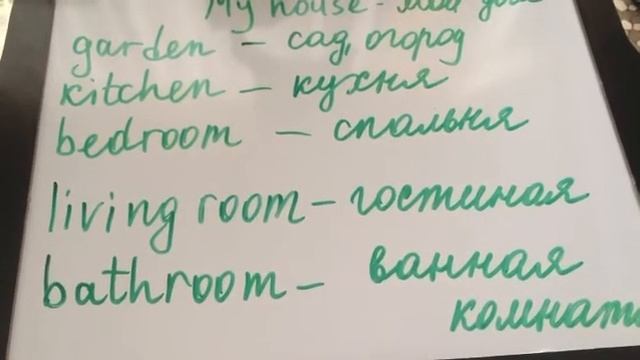 My house - мой дом
garden - сад, огород
kitchen - кухня
bedroom - спальня
living room - гостиная
bathroom - ванная